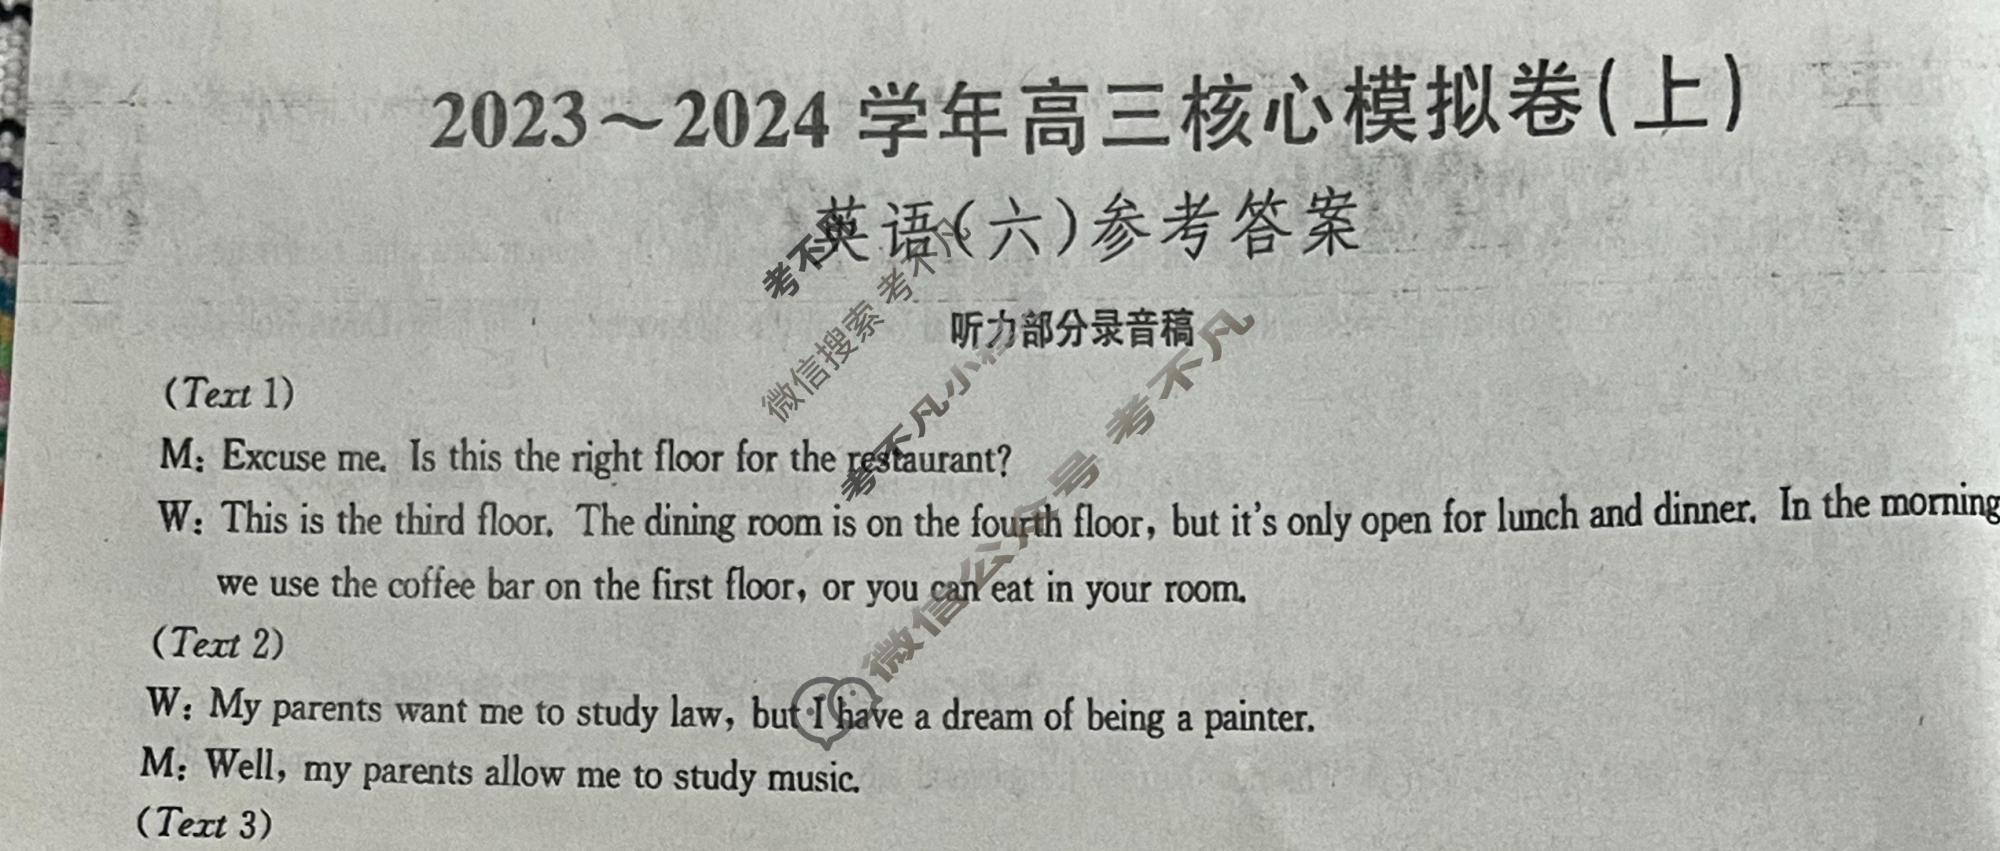 2023～2024学年高三核心模拟卷(上)
英语(六)参考答案
听力部分录音稿
(Text 1)
M: Excuse me. Is this the right floor for the restaurant?
W: This is the third floor. The dining room is on the fourth floor, but it's only open for lunch and dinner. In the morning
we use the coffee bar on the first floor, or you can eat in your room.
(Text 2)
W: My parents want me to study law, but I have a dream of being a painter.
M: Well, my parents allow me to study music.
(Text 3)
考不凡
微信搜索 考不凡
考不凡小程
微信公众号 考不凡